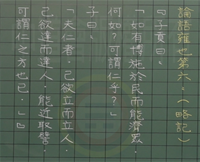 論語雍也第六:(略記)
「子貢曰:
「如有博施於民而能濟眾,
何如?可謂仁乎?」
子曰:
「夫仁者,己欲立而立人
己欲達而達人。能近取譬,
可謂仁之方也已。」」